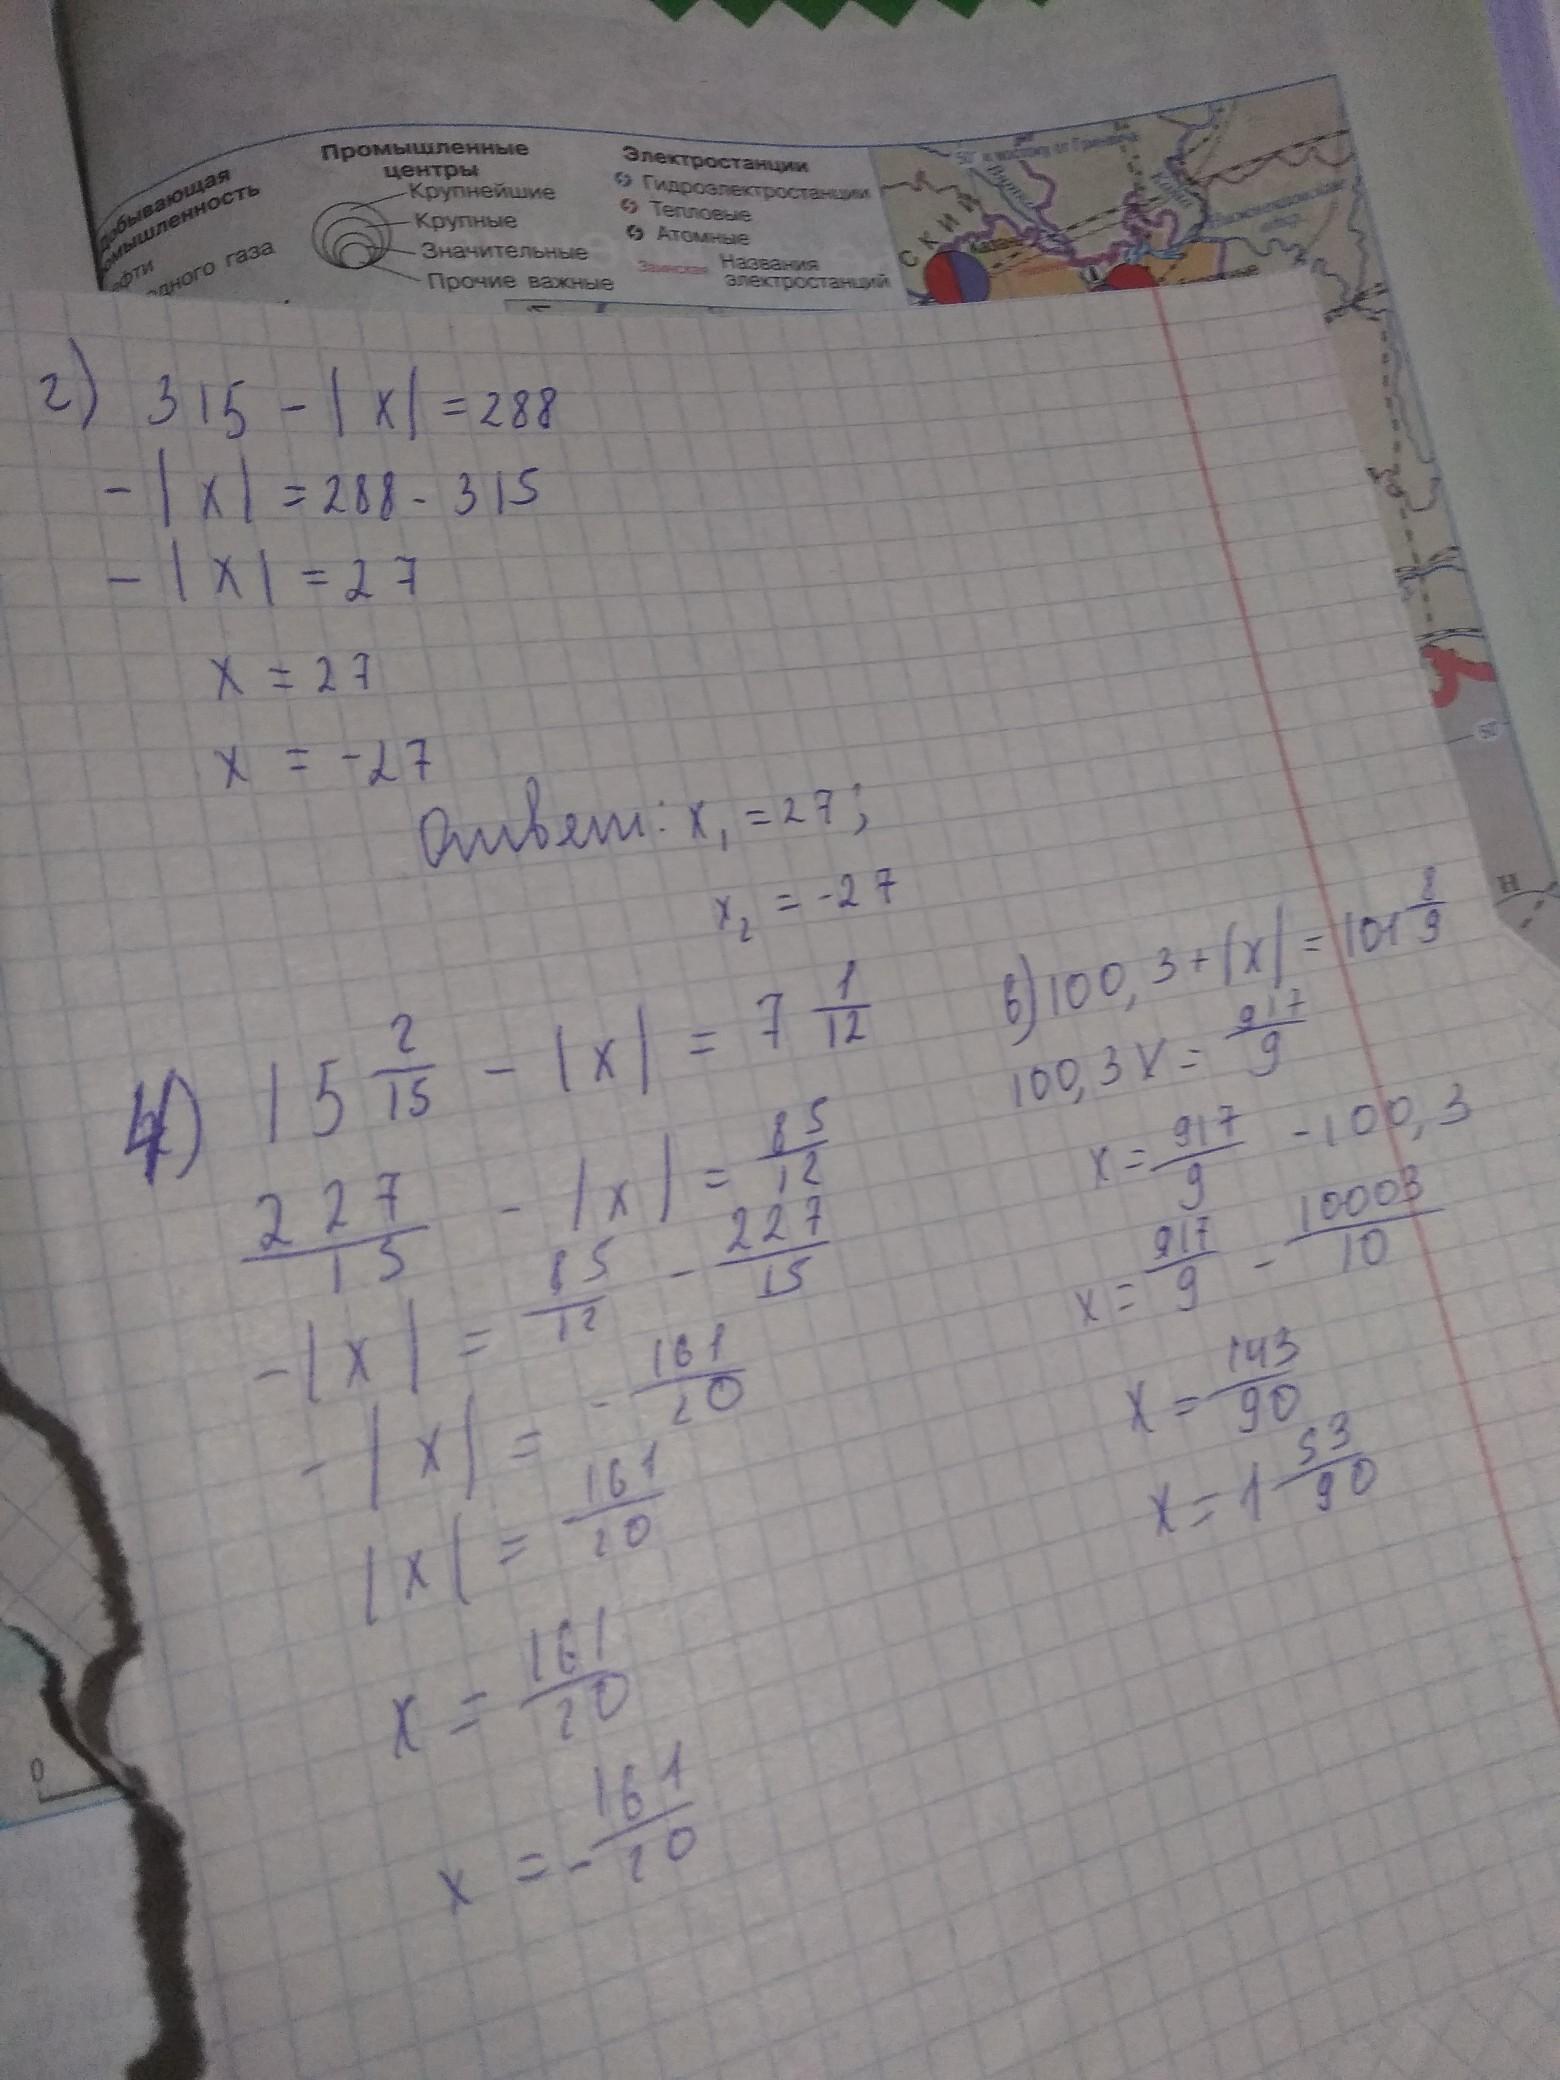 добывающая
Промышленные
центры
Крупнейшие
Крупные
Значительные
Прочие важные
Электростанции
Гидроэлектростанции
Тепловые
Атомные
Заинская Названия
электростанций
50° к востоку от Гринвича
СКИЙ
г) 315 - |x| = 288
- |x| = 288 - 315
- |x| = 27
x = 27
x = -27
Ответ: x₁ = 27;
x₂ = -27
15 2/15 - |x| = 7 1/12
227/15 - |x| = 85/12
-|x| = 85/12 - 227/15
-|x| = - 161/20
|x| = 161/20
x = 161/20
x = - 161/20
в) 100,3 + |x| = 101 8/9
100,3 x = 917/9
x = 917/9 - 100,3
x = 917/9 - 10003/10
x = 143/90
x = 1 53/90
50°
H
0